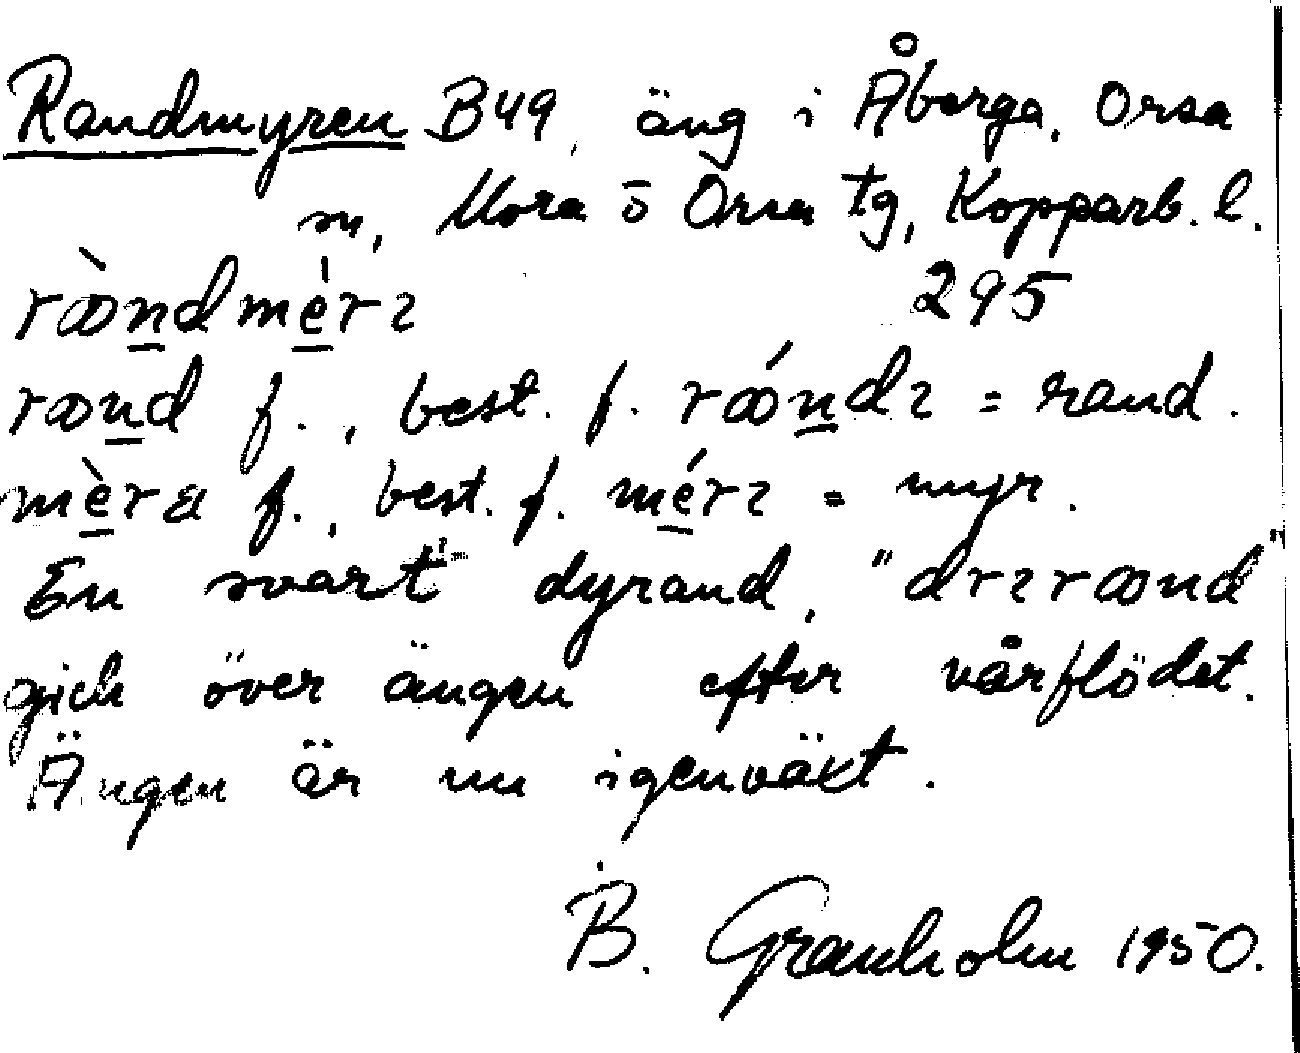 Randmyren B49, äng i Åberga, Orsa
sn, Mora o Orsa tg, Kopparb. l.
ròꝏndmèrꝛ 295
rꝏnd f., best. f. rꝏ́ndꝛ = rand.
mèra f., best. f. mérꝛ = myr.
En svart dyrand, "drꝛrꝏnd"
gick över ängen efter vårflödet.
Ängen är nu igenväxt.
B. Granholm 1950.